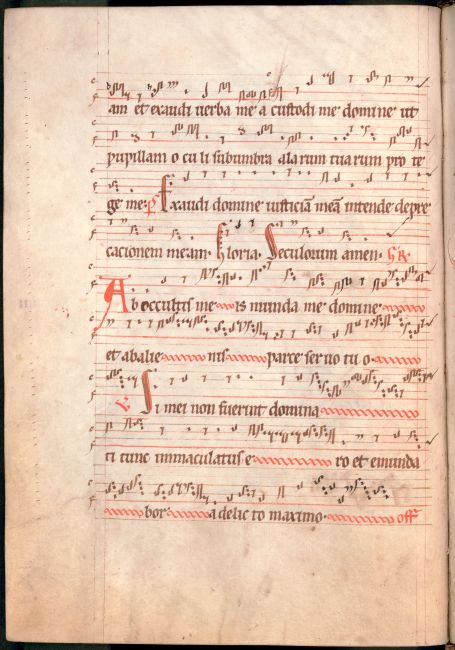 am et exaudi verba me a custodi me domine ut
pupillam o cu li sub umbra alarum tuarum pro te
ge me. Exaudi domine iusticiā meā intende depre
cacionem meam. Gloria. Seculorum amen. GR
Ab occultis me is munda me domine
et abalie nis parce servo tu o
V. Si mei non fuerint domina
ti tunc immaculatus e ro et emunda
bor a delic to maximo. off